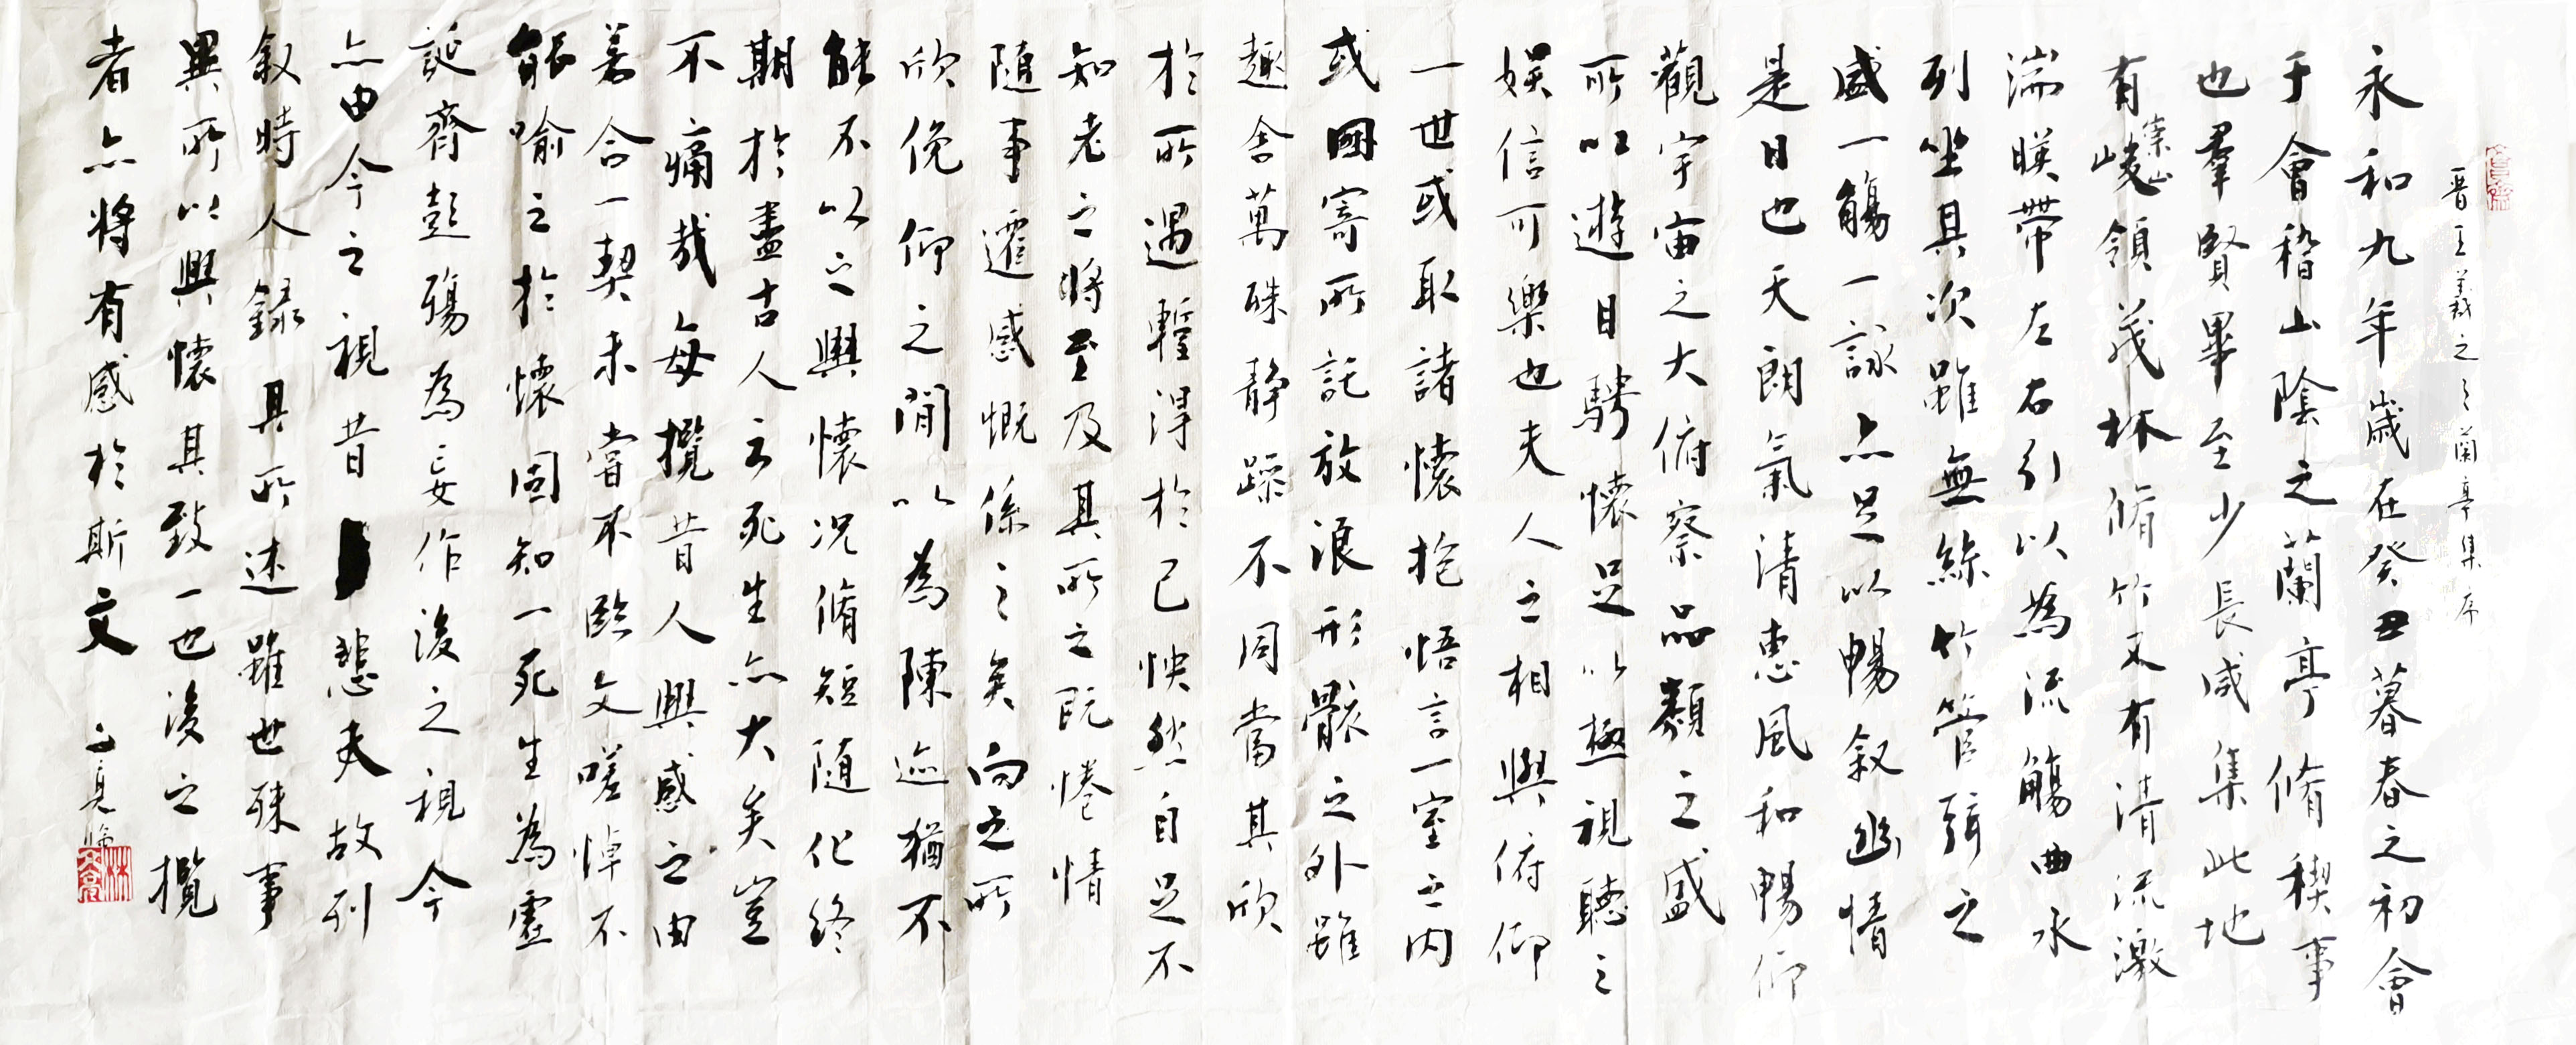 晋王羲之之蘭亭集序
永和九年歲在癸丑暮春之初會
于會稽山陰之蘭亭脩稧事
也羣賢畢至少長咸集此地
有崇山峻領茂林脩竹又有清流激
湍暎帶左右引以為流觴曲水
列坐其次雖無絲竹管弦之
盛一觴一詠亦足以暢叙幽情
是日也天朗氣清惠風和暢仰
觀宇宙之大俯察品類之盛
所以遊目騁懷足以極視聽之
娱信可樂也夫人之相與俯仰
一世或取諸懷抱悟言一室之内
或因寄所託放浪形骸之外雖
趣舍萬殊静躁不同當其欣
於所遇蹔得於己怏然自足不
知老之將至及其所之既惓情
隨事遷感慨係之矣向之所
欣俛仰之間以為陳迹猶不
能不以之興懷況脩短隨化終
期於盡古人云死生亦大矣豈
不痛哉每攬昔人興感之由
若合一契未嘗不臨文嗟悼不
能喻之於懷固知一死生為虛
誕齊彭殤為妄作後之視今
亦由今之視昔悲夫故列
叙時人錄其所述雖世殊事
異所以興懷其致一也後之攬
者亦將有感於斯文